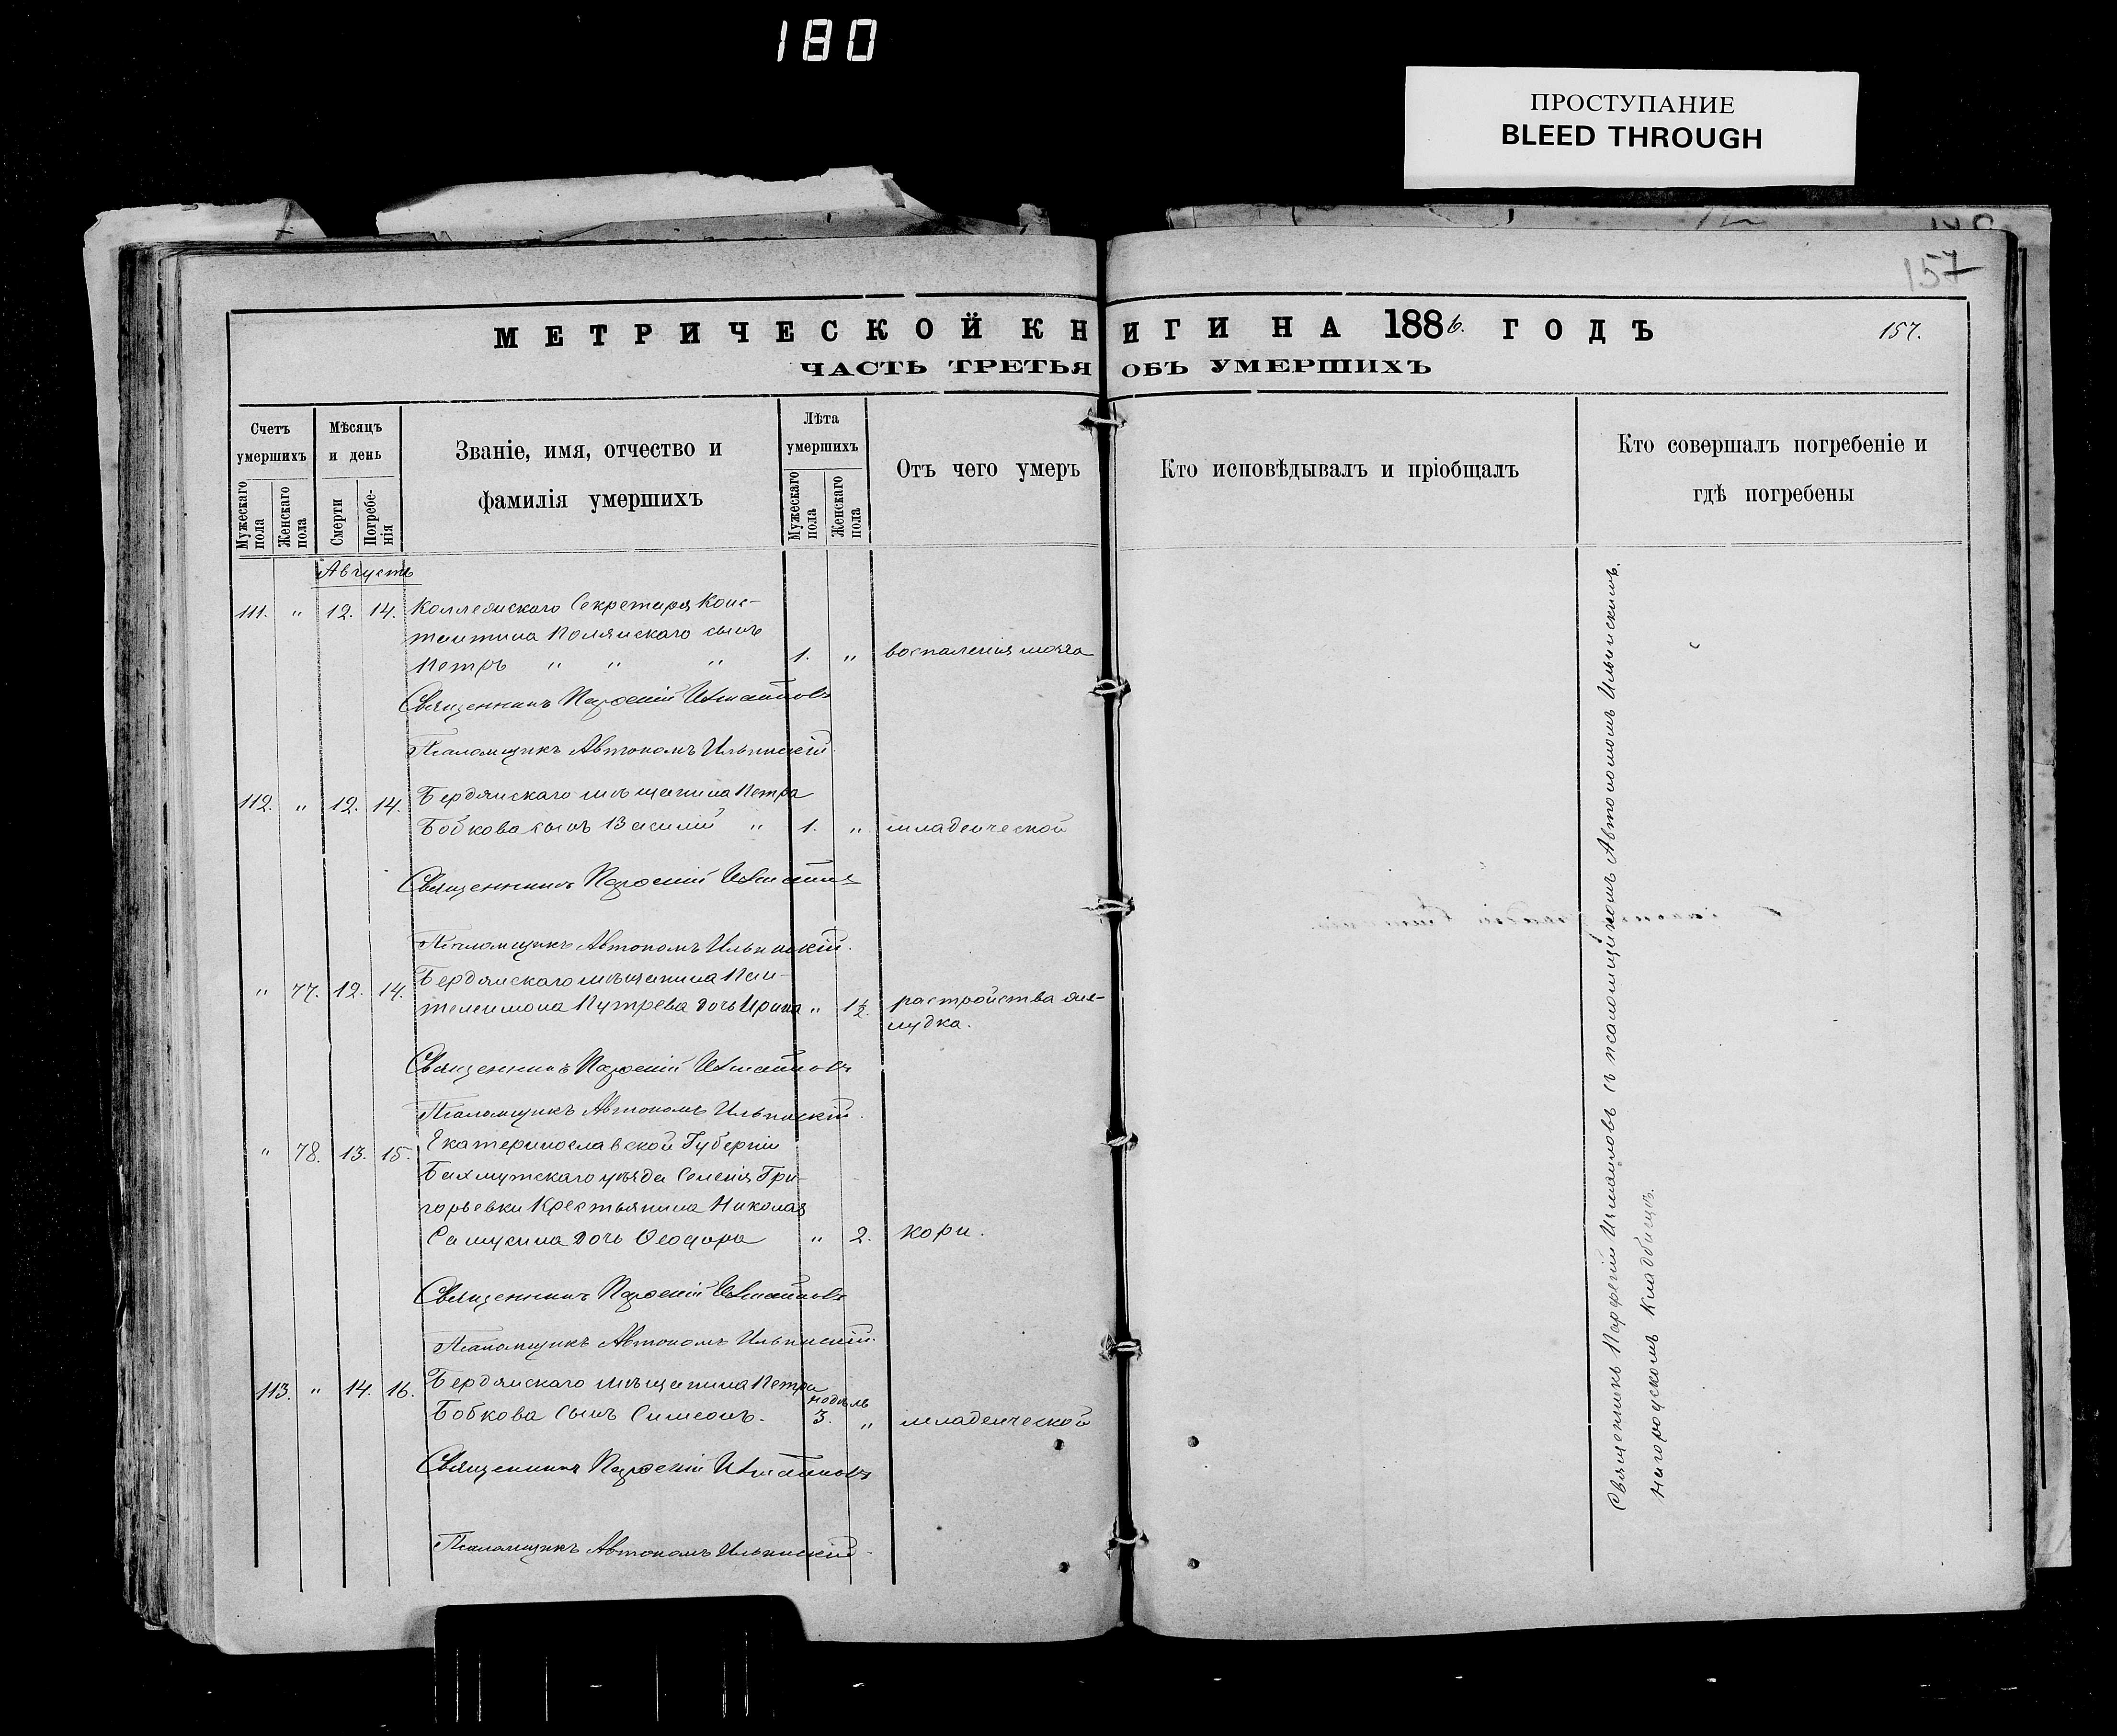 180
ПРОСТУПАНИЕ
BLEED THROUGH
157
МЕТРИЧЕСКОЙ КНИГИ НА 1886. ГОДЪ
157.
ЧАСТЬ ТРЕТЬЯ ОБЪ УМЕРШИХЪ
Счетъ умершихъ
Мужескаго пола
Женскаго пола
Мѣсяцъ и день
Смерти
Погребе-
нія
Званіе, имя, отчество и
фамилія умершихъ
Лѣта умершихъ
Мужескаго пола
Женскаго пола
Отъ чего умеръ
Кто исповѣдывалъ и пріобщалъ
Кто совершалъ погребеніе и
гдѣ погребены
Августъ
111. " 12. 14. Коллежскаго Секретаря Конс-
тантина Полянскаго сынъ
Петръ " " " 1. " воспаленія мозга
Священникъ Парѳеній Измаиловъ
Псаломщикъ Автономъ Ильинскій.
112. " 12. 14. Бердянскаго мѣщанина Петра
Бобкова сынъ Василій " 1. " младенческой
Священникъ Парѳеній Измаиловъ
Псаломщикъ Автономъ Ильинскій.
" 77. 12. 14. Бердянскаго мѣщанина Пан-
телеимона Путрева дочь Ирина " 1½. растройства же-
лудка.
Священникъ Парѳеній Измаиловъ
Псаломщикъ Автономъ Ильинскій.
" 78. 13. 15. Екатеринославской Губерніи
Бахмутскаго уѣзда Селенія Гри-
горьевки Крестьянина Николая
дочь Ѳеодора " 2. кори.
Священникъ Парѳеній Измаиловъ
Псаломщикъ Автономъ Ильинскій.
113. " 14. 16. Бердянскаго мѣщанина Петра
недѣль
Бобкова сынъ Симеонъ. 3. " младенческой
Священникъ Парѳеній Измаиловъ
Псаломщикъ Автономъ Ильинскій
Священникъ Парѳеній Измаиловъ съ псаломщикомъ Автономомъ Ильинскимъ.
На городскомъ кладбищѣ.